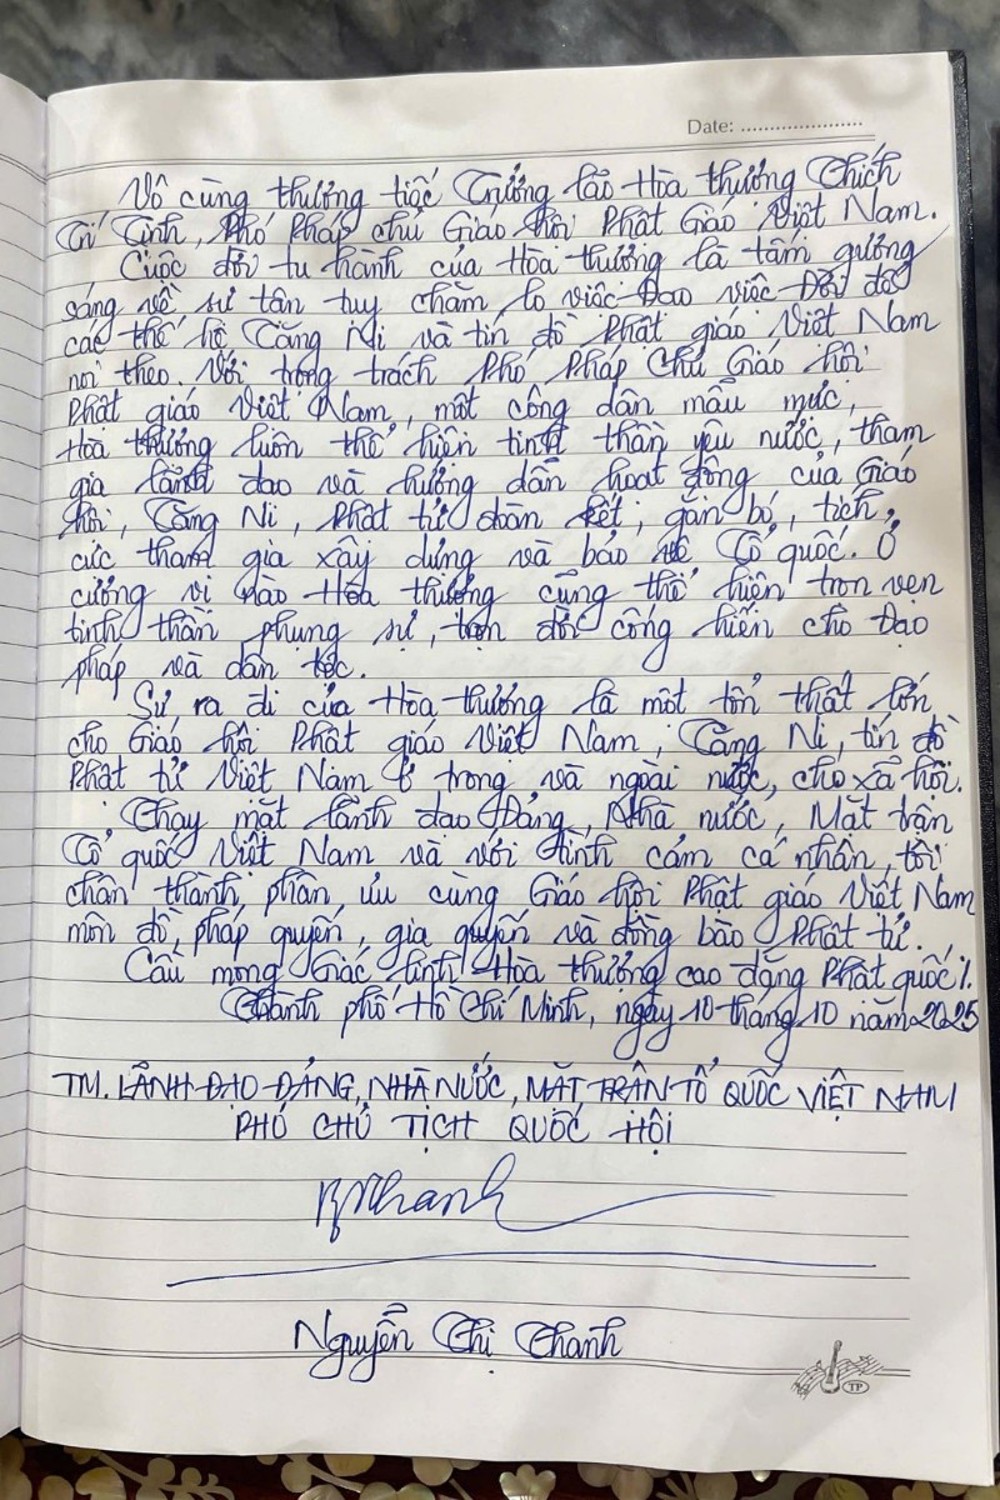 Date: ......................
Vô cùng thương tiếc Trưởng lão Hòa thượng Thích
Trí Tịnh, Phó Pháp chủ Giáo hội Phật Giáo Việt Nam.
Cuộc đời tu hành của Hòa thượng là tấm gương
sáng về sự tận tụy chăm lo việc Đạo việc Đời để
các thế hệ Tăng Ni và tín đồ Phật giáo Việt Nam
noi theo. Với trọng trách Phó Pháp Chủ Giáo hội
Phật giáo Việt Nam, một công dân mẫu mực,
Hòa thượng luôn thể hiện tinh thần yêu nước, tham
gia lãnh đạo và hướng dẫn hoạt động của Giáo
hội, Tăng Ni, Phật tử đoàn kết, gắn bó, tích
cực tham gia xây dựng và bảo vệ Tổ quốc. Ở
cương vị nào Hòa thượng cũng thể hiện trọn vẹn
tinh thần phụng sự, trọn đời cống hiến cho Đạo
pháp và dân tộc.
Sự ra đi của Hòa thượng là một tổn thất lớn
cho Giáo hội Phật giáo Việt Nam, Tăng Ni, tín đồ
Phật tử Việt Nam ở trong và ngoài nước, cho xã hội.
Thay mặt lãnh đạo Đảng, Nhà nước, Mặt trận
Tổ quốc Việt Nam và với tình cảm cá nhân, tôi
chân thành phân ưu cùng Giáo hội Phật giáo Việt Nam
môn đồ, pháp quyến, gia quyến và đồng bào Phật tử.
Cầu mong Giác linh Hòa thượng cao đăng Phật quốc./.
Thành phố Hồ Chí Minh, ngày 10 tháng 10 năm 2025
TM. LÃNH ĐẠO ĐẢNG, NHÀ NƯỚC, MẶT TRẬN TỔ QUỐC VIỆT NAM
PHÓ CHỦ TỊCH QUỐC HỘI
Nguyễn Thị Thanh
TP